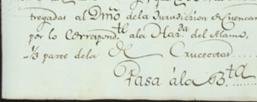 tregadas al Dmo. de la Jurisdiccion de Cuenca
por lo Correspondte. ala Hazda. del Mismo.
⅓ parte dela de Crucecitas
Pasa ála Bta